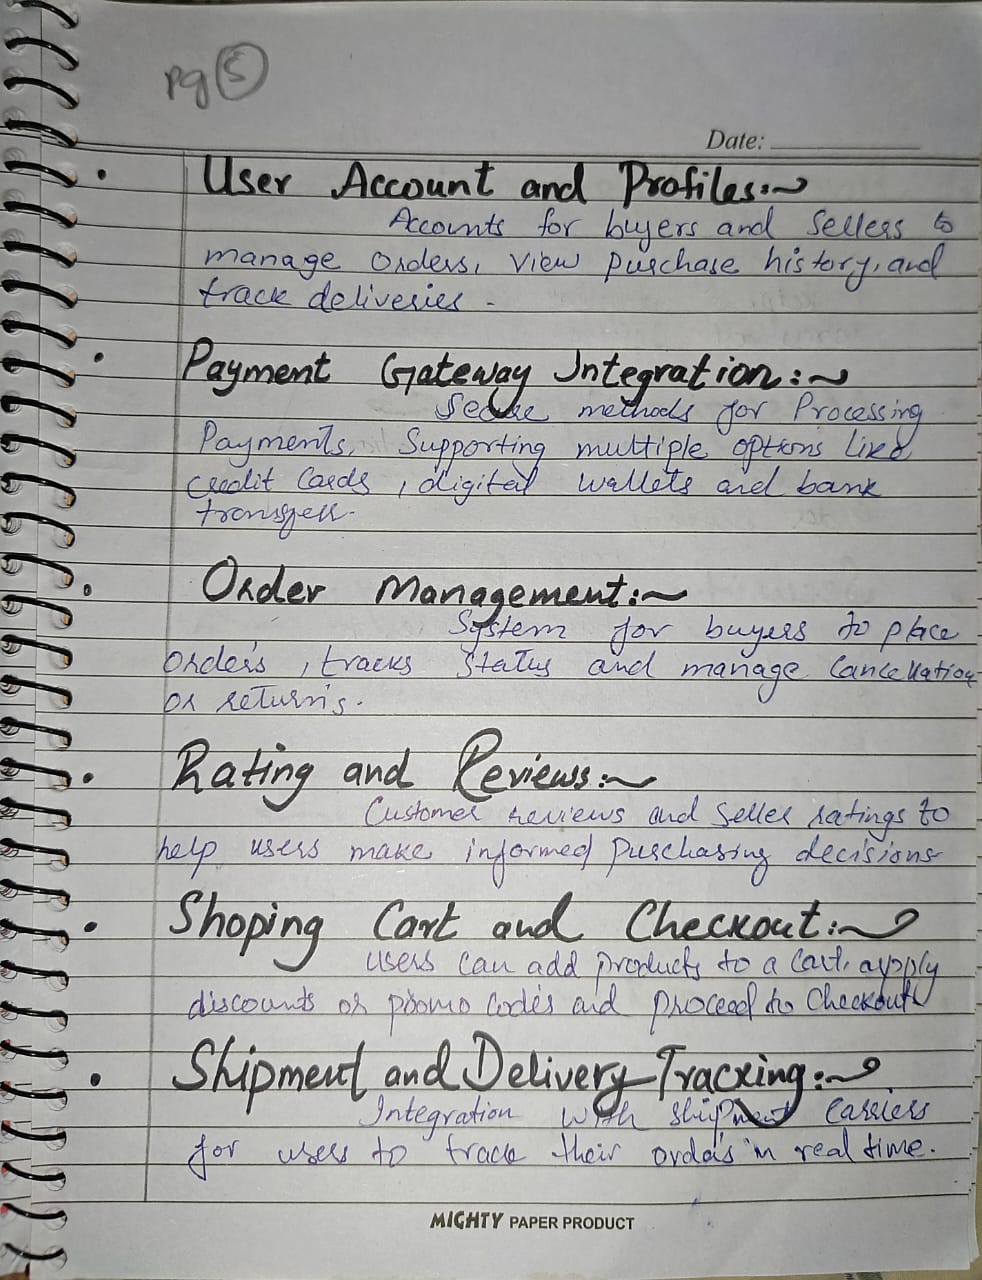 pg 5
Date:
• User Account and Profiles:~
Accounts for buyers and Sellers to
manage Orders, View Purchase history, and
track deliveries -
• Payment Gateway Integration:~
Secure methods for Processing
Payments, Supporting multiple options like
credit Cards, digital wallets and bank
transfer.
• Order Management:~
System for buyers to place
Orders, tracks Status and manage Cancellation
or returns.
• Rating and Reviews:~
Customer reviews and Seller ratings to
help users make informed Purchasing decisions
• Shoping Cart and Checkout:~
Users Can add products to a Cart, apply
discounts or promo Codes and proceed to Checkout
• Shipment and Delivery Tracking:~
Integration with shipment Carriers
for users to track their orders in real time.
MIGHTY PAPER PRODUCT